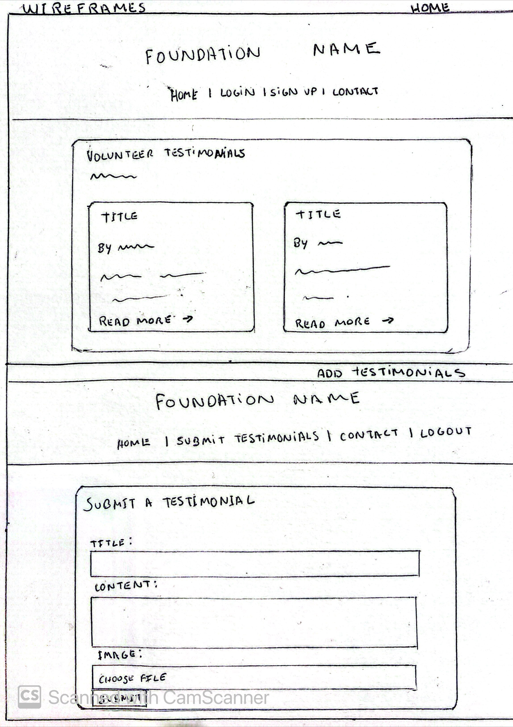 WIREFRAMES HOME
FOUNDATION NAME
HOME | LOGIN | SIGN UP | CONTACT
VOLUNTEER TESTIMONIALS
TITLE
BY
READ MORE →
TITLE
BY
READ MORE →
ADD TESTIMONIALS
FOUNDATION NAME
HOME | SUBMIT TESTIMONIALS | CONTACT | LOGOUT
SUBMIT A TESTIMONIAL
TITLE:
CONTENT:
IMAGE:
CHOOSE FILE
SUBMIT
CS Scanned with CamScanner